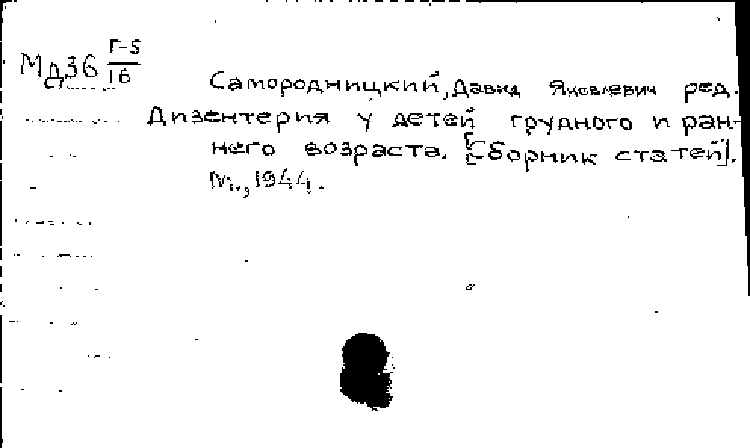 Мд36 Г-5/16
Самородницкий, Давид Яковлевич ред.
Дизентерия у детей грудного и ран-
него возраста. [Сборник статей].
М., 1944.